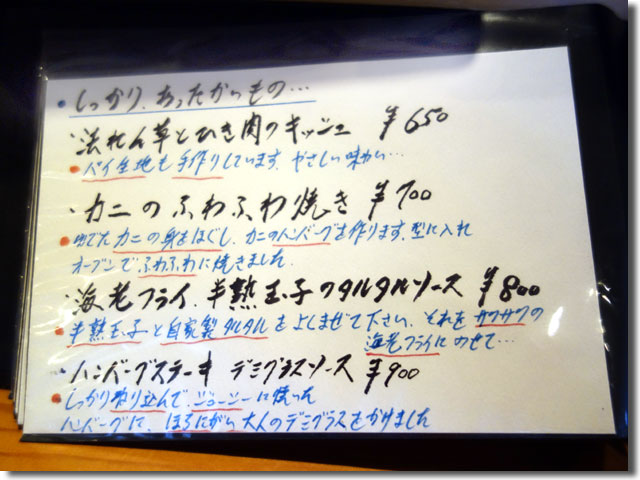 ・しっかり、あったかいもの…
・法れん草とひき肉のキッシュ ¥650
・パイ生地も手作りしています。やさしい味わい…
・カニのふわふわ焼き ¥700
・ゆでたカニの身をほぐし、カニのハンバーグを作ります。型に入れ
オーブンでふわふわに焼きました
・海老フライ、半熟玉子のタルタルソース ¥800
・半熟玉子と自家製タルタルをよくまぜて下さい、それをサクサクの
海老フライにのせて…
・ハンバーグステーキ デミグラスソース ¥900
・しっかり練り込んで、ジューシーに焼いた
ハンバーグに、ほろにがい大人のデミグラスをかけました